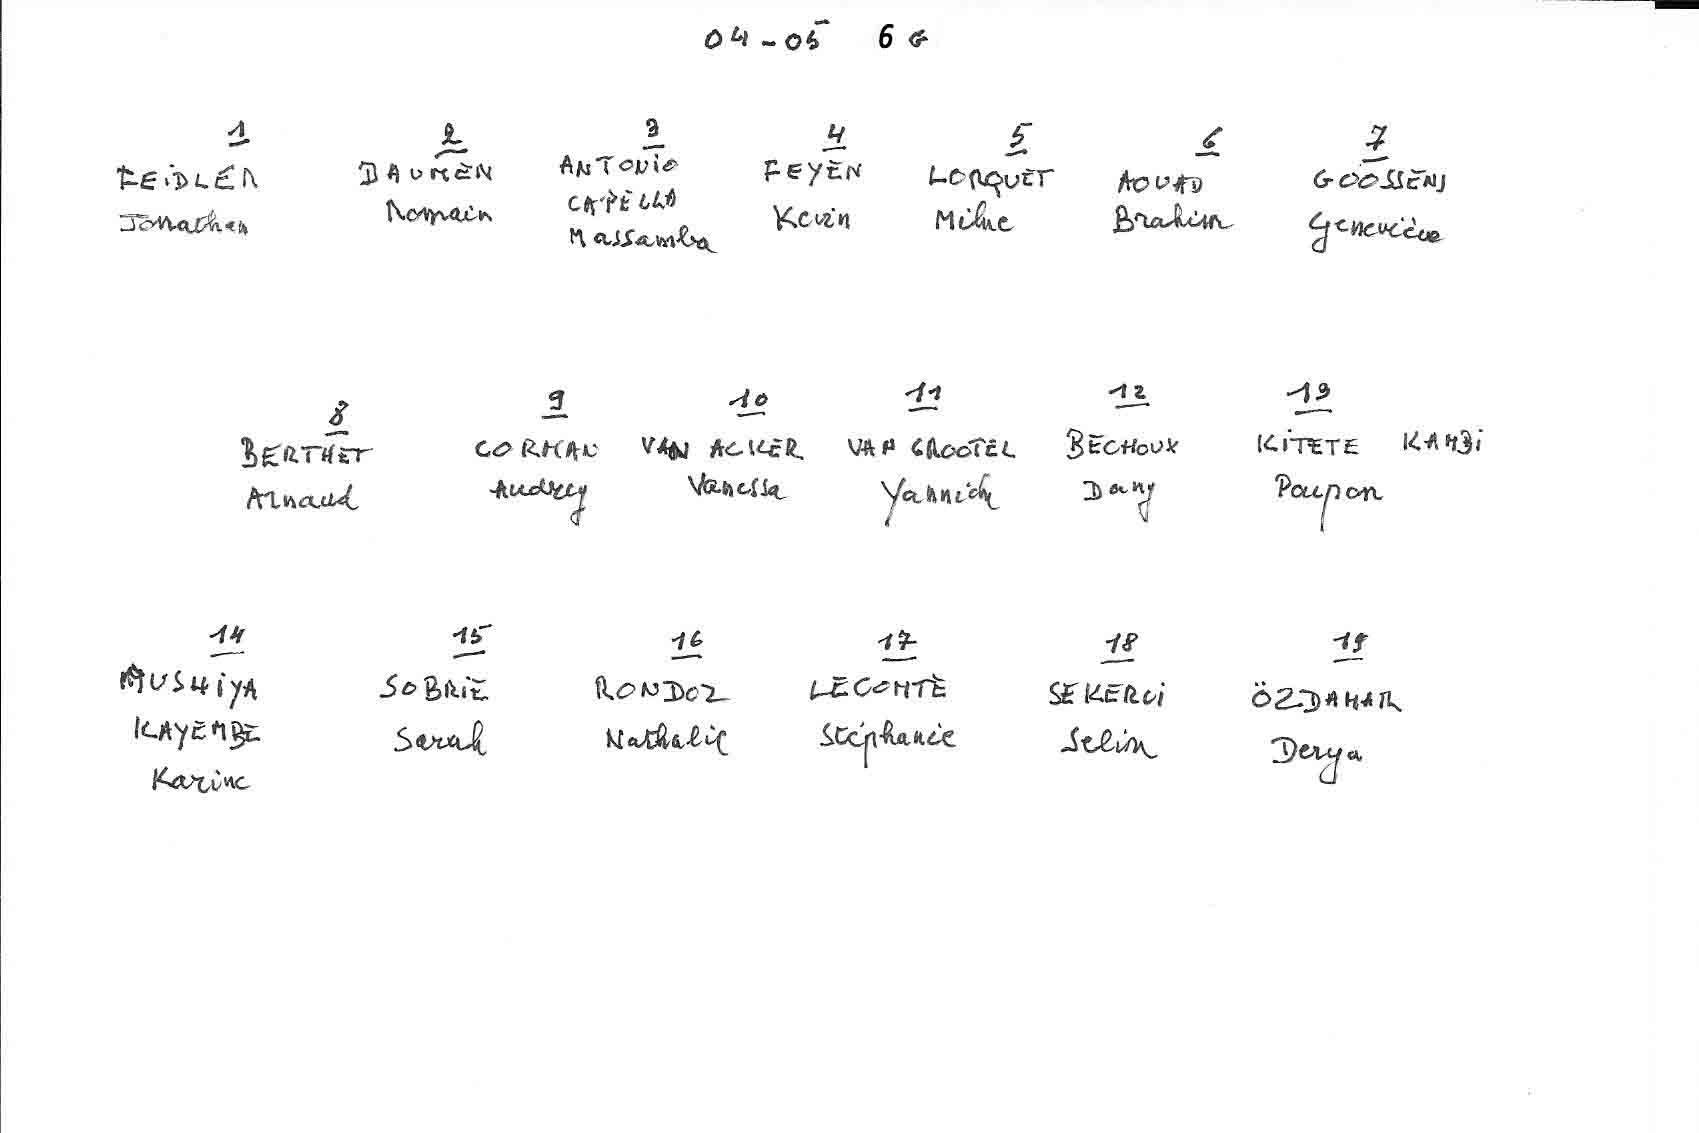 04-05 6G
1 2 3 4 5 6 7
FEIDLER DAUMEN ANTONIO FEYEN LORQUET AOUAD GOOSSENS
Jonathan Romain CAPELLO Kevin Milne Brahim Geneviève
Massamba
8 9 10 11 12 13
BERTHET CORMAN VAN ACKER VAN GROOTEL BECHOUX KITETE KAMBI
Arnaud Audrey Vanessa Yannick Dany Poupon
14 15 16 17 18 19
MUSHIYA SOBRIE RONDOZ LECOMTE SEKERCI ÖZDAMAR
KAYEMBE Sarah Nathalie Stéphanie Selim Derya
Karine